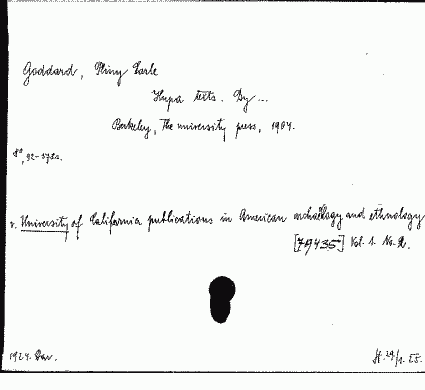 Goddard, Pliny Earle
Hupa texts. By ...
Berkeley, The university press, 1904.
8°, 92-378s.
v. University of California publications in American archæology and ethnology
[79435] Vol. 1. No. 2.
1924.
H. 29/1. 25.